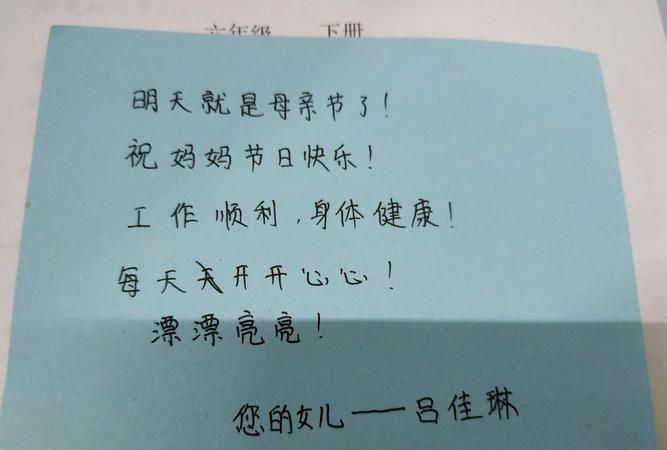 六年级 下册
明天就是母亲节了!
祝妈妈节日快乐!
工作顺利,身体健康!
每天开开心心!
漂漂亮亮!
您的女儿——吕佳琳